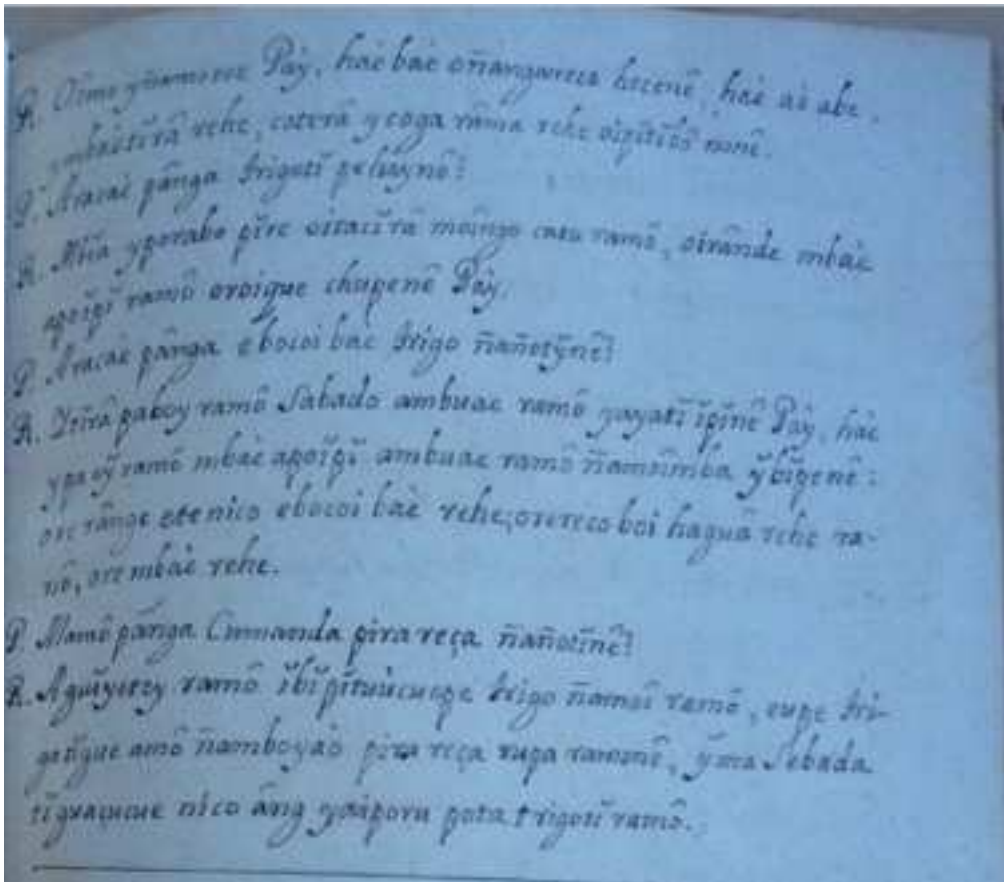 R. Oĩme yñamoroe Pay, haè baè oñangareco hecenê, haè aè abe,
rehe, coterâ y coga râma rehe oipĩtĩbõ nonê.
P. Aracaè pânga trigotĩ
R. Mĩa yporabo pĩre oitacĩrâ moingo catu ramô, oirânde mbaè
apoĩpĩ ramô oroique chupenê Pay.
P. Aracaè pânga ebocoi baè trigo ñañotỹnê?
R. paboy ramô Sabado ambuae ramô yayatĩ ĩpĩnê Pay, haè
ypa oỹ ramô mbaè apoĩpĩ ambuae ramô ñamoimba ỹbĩpenê:
ore rânge etenico ebocoi baè rehe, orereco boi haguâ rehe ra-
nô, ore mbaè rehe.
P. Mamô pânga Cumanda pira reça ñañotĩnê?
R. Aguĩyetey ramô ĩbĩ pĩtuùcuepe trigo ñamoi ramô, eupe tri-
gotĩgue amô ñamboyaò pira reça rupa ramonê, ỹma Sebada
tĩ nico âng yaiporu pota trigotĩ ramô.